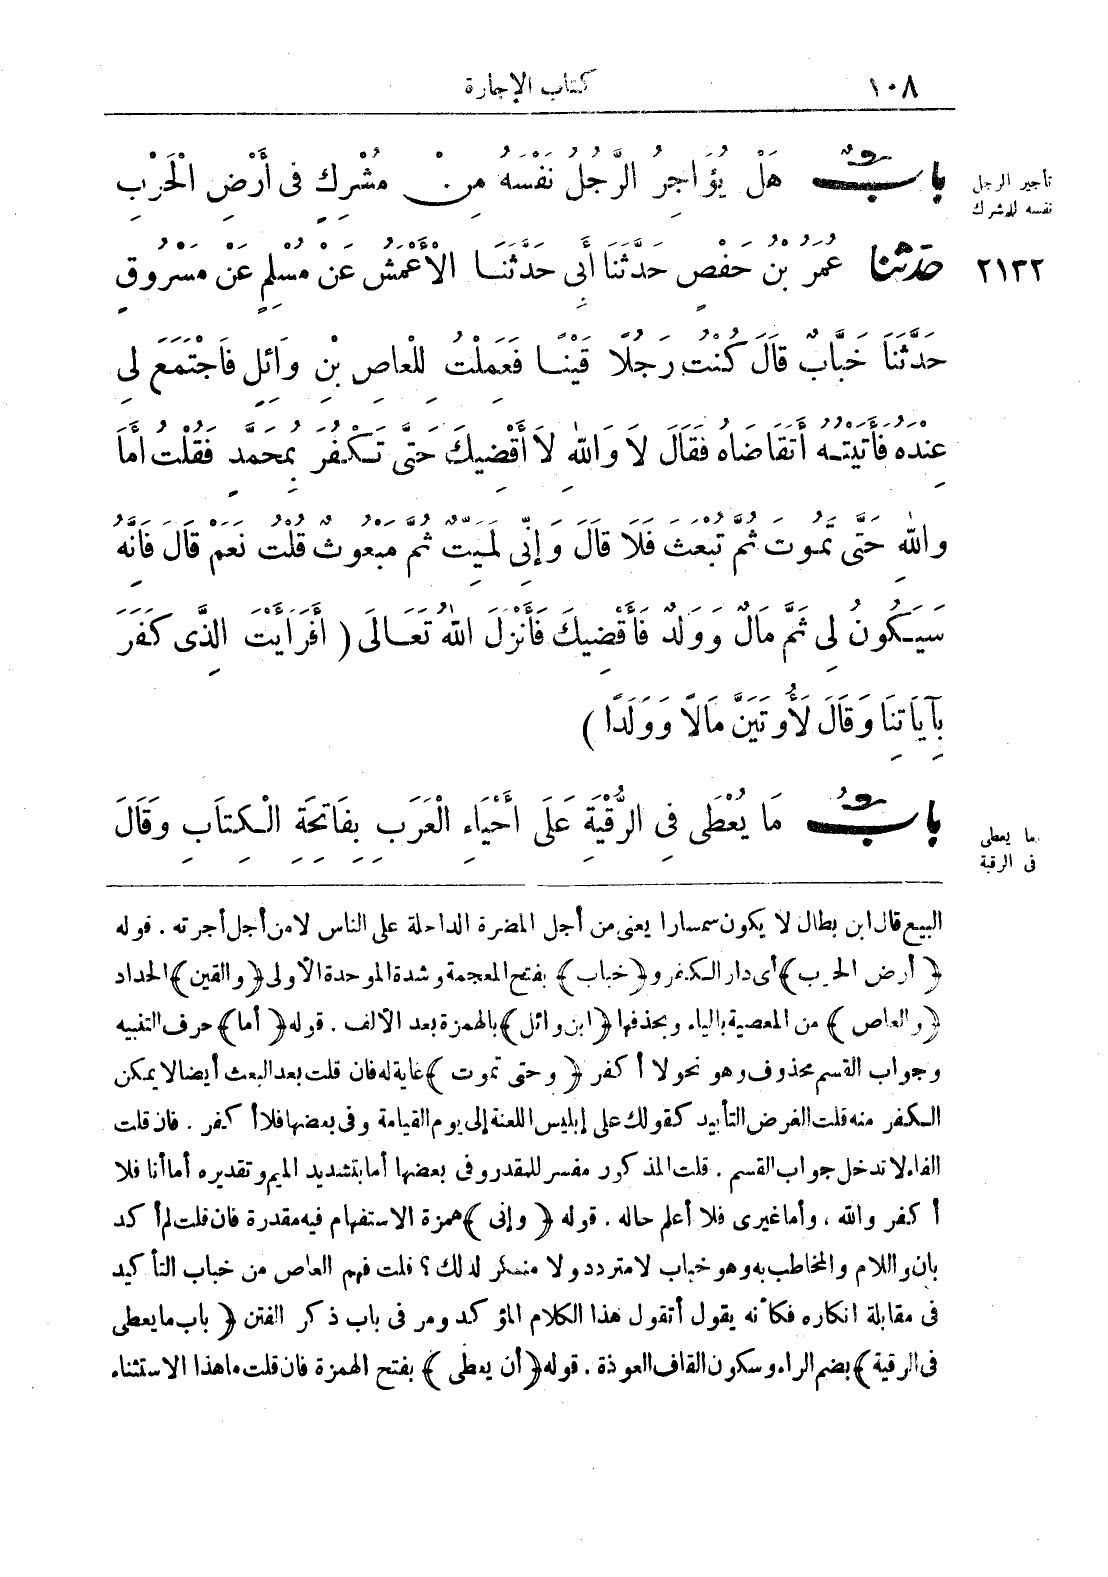 ١٠٨ كتاب الإجارة
بابٌ هَلْ يُؤَاجِرُ الرَّجُلُ نَفْسَهُ مِنْ مُشْرِكٍ فِى أَرْضِ الْحَرْبِ
تأجير الرجل
نفسه للمشرك
٢١٣٢ حَدَّثَنَا عُمَرُ بْنُ حَفْصٍ حَدَّثَنَا أَبِى حَدَّثَنَا الْأَعْمَشُ عَنْ مُسْلِمٍ عَنْ مَسْرُوقٍ
حَدَّثَنَا خَبَّابٌ قَالَ كُنْتُ رَجُلًا قَيْنًا فَعَمِلْتُ لِلْعَاصِ بْنِ وَائِلٍ فَاجْتَمَعَ لِى
عِنْدَهُ فَأَتَيْتُهُ أَتَقَاضَاهُ فَقَالَ لَا وَاللهِ لَا أَقْضِيكَ حَتَّى تَكْفُرَ بِمُحَمَّدٍ فَقُلْتُ أَمَا
وَاللهِ حَتَّى تَمُوتَ ثُمَّ تُبْعَثَ فَلَا قَالَ وَإِنِّى لَمَيِّتٌ ثُمَّ مَبْعُوثٌ قُلْتُ نَعَمْ قَالَ فَإِنَّهُ
سَيَكُونُ لِى ثَمَّ مَالٌ وَوَلَدٌ فَأَقْضِيكَ فَأَنْزَلَ اللهُ تَعَالَى (أَفَرَأَيْتَ الَّذِى كَفَرَ
بِآيَاتِنَا وَقَالَ لَأُوتَيَنَّ مَالًا وَوَلَدًا)
بابُ مَا يُعْطَى فِى الرُّقْيَةِ عَلَى أَحْيَاءِ الْعَرَبِ بِفَاتِحَةِ الْكِتَابِ وَقَالَ
ما يعطى
فى الرقية
البيع قال ابن بطال لا يكون سمسارا يعنى من أجل المضرة الداخلة على الناس لا من أجل أجرته . قوله
﴿أرض الحرب﴾ أى دار الكفر و﴿خباب﴾ بفتح المعجمة وشدة الموحدة الأولى ﴿والقين﴾ الحداد
﴿والعاص﴾ من المعصية بالياء وبحذفها ﴿ابن وائل﴾ بالهمزة بعد الألف . قوله ﴿أما﴾ حرف التنبيه
وجواب القسم محذوف وهو نحو لا أكفر ﴿وحتى تموت﴾ غاية له فان قلت بعد البعث أيضا لا يمكن
الكفر منه قلت الغرض التأبيد كقولك على إبليس اللعنة إلى يوم القيامة وفى بعضها فلا أكفر . فان قلت
الفاء لا تدخل جواب القسم . قلت المذكور مفسر للمقدر وفى بعضها أما بتشديد الميم وتقديره أما أنا فلا
أكفر والله ، وأما غيرى فلا أعلم حاله . قوله ﴿وإنى﴾ همزة الاستفهام فيه مقدرة فان قلت لم أكد
بان واللام والمخاطب به وهو خباب لا متردد ولا منكر لذلك ؟ قلت فهم العاص من خباب التأكيد
فى مقابلة انكاره فكأنه يقول أتقول هذا الكلام المؤكد ومر فى باب ذكر الفتن ﴿باب ما يعطى
فى الرقية﴾ بضم الراء وسكون القاف العوذة . قوله ﴿أن يعطى﴾ بفتح الهمزة فان قلت ما هذا الاستثناء